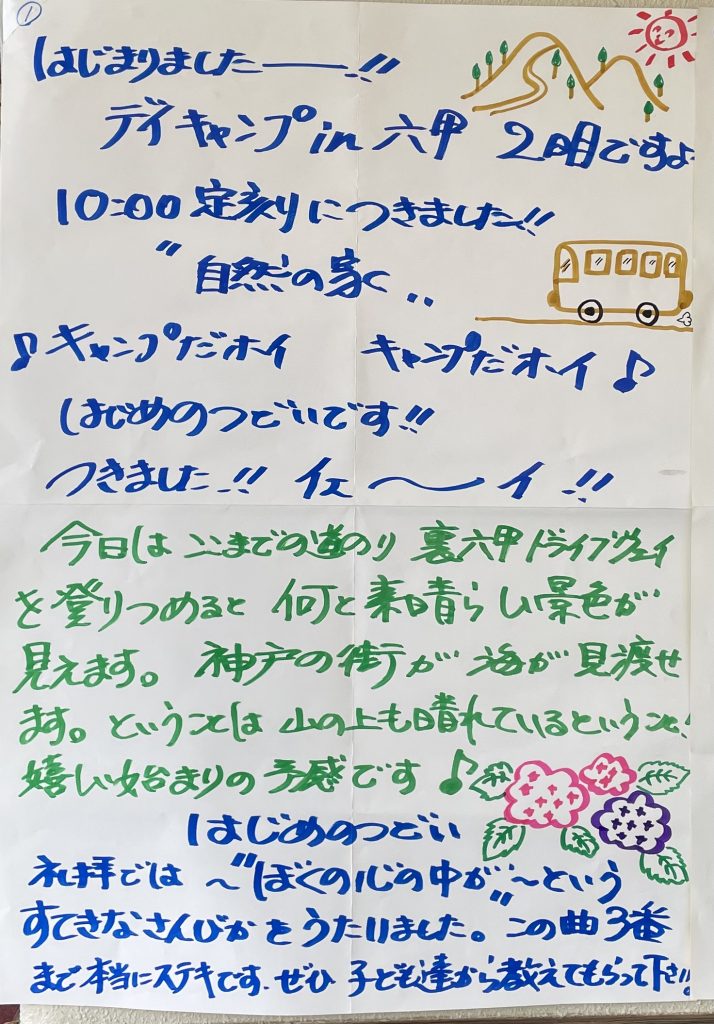 ①
はじまりましたー!!
デイキャンプin六甲 2日目ですよ
10:00 定刻につきました!!
〃 自然の家く〃
♪キャンプだホイ キャンプだホイ♪
はじめのつどいです!!
つきました!! イェ〜イ!!
今日は ここまでの道のり 裏六甲ドライブウェイ
を登りつめると 何と素晴らしい景色が
見えます。 神戸の街が 海が 見渡せ
ます。ということは 山の上も晴れているということ!
嬉しい始まりの予感です♪
はじめのつどい
礼拝では 〜"ぼくの心の中が"〜という
すてきなさんびかをうたいました。この曲3番
まで本当にステキです.ぜひ 子ども達から教えてもらって下さい!!